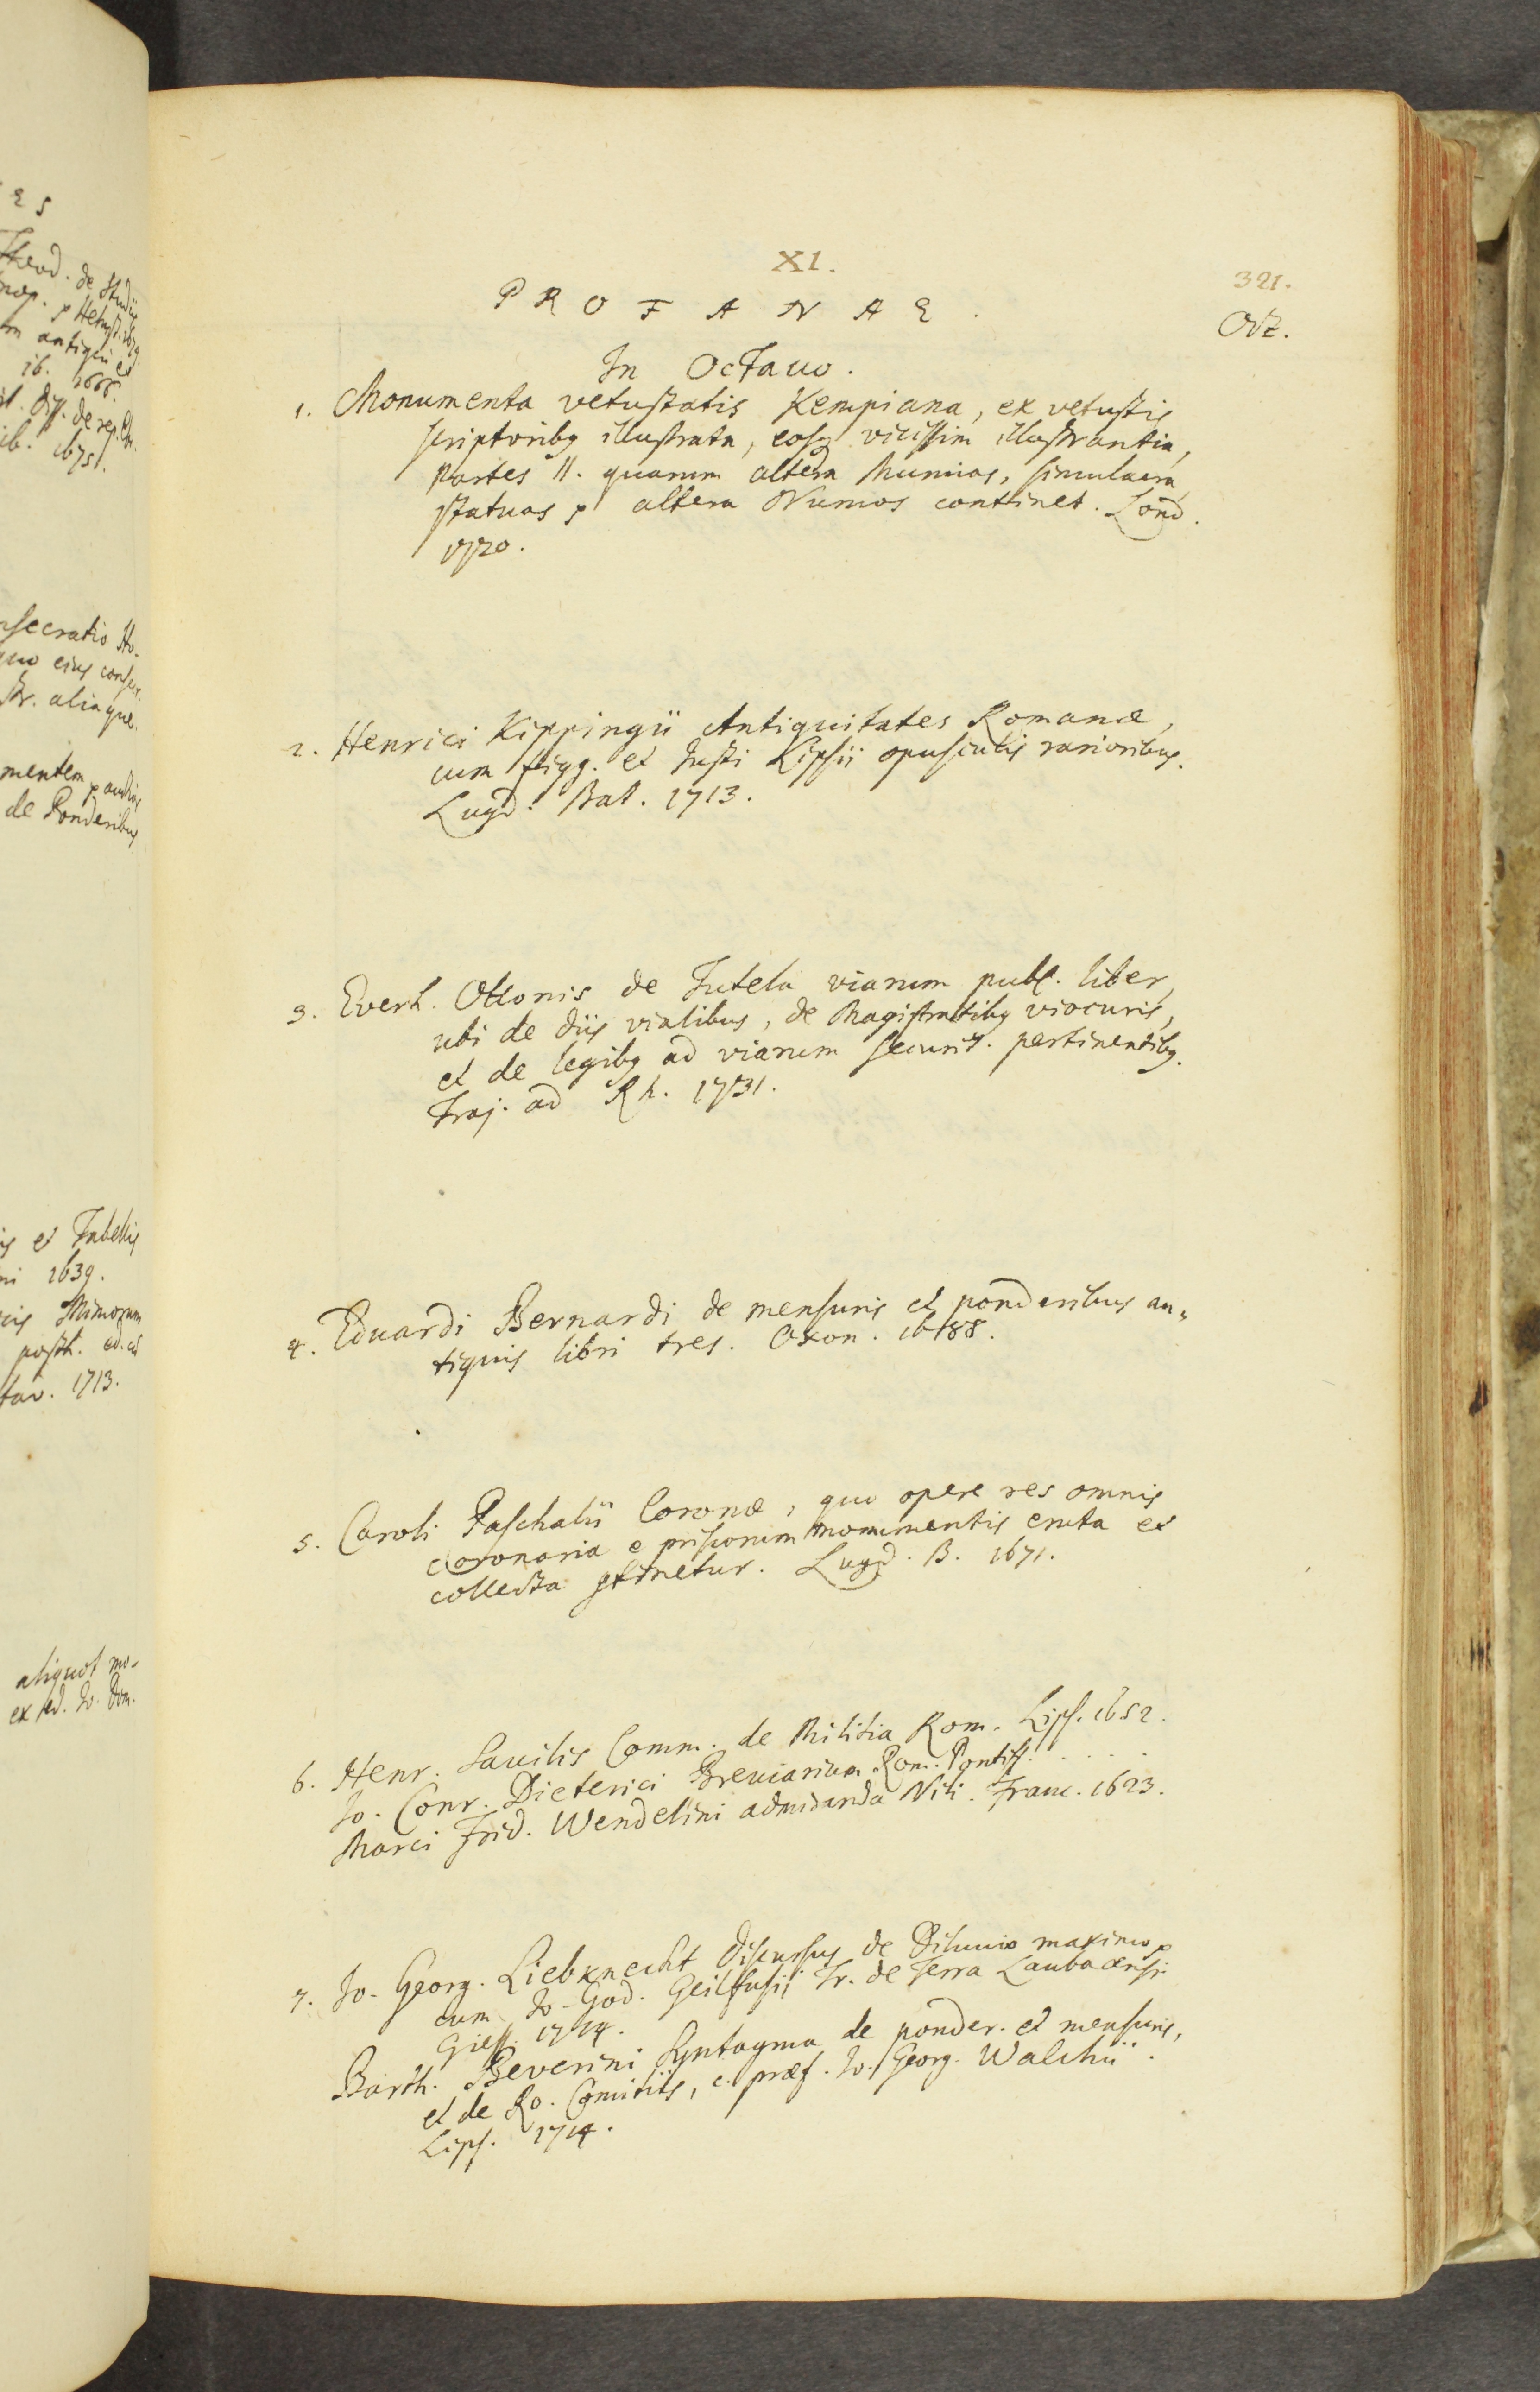 XI.
321.
PROFANAE.
Oct.
In Octauo.
1. Monumenta vetustatis Kempiana, ex vetustis
scriptoribq illustrata, eosq vicissim illustrantia,
Partes II. quarum altera Mumias, simulacra,
statuas p altera Numos continet. Lond.
1720.
2. Henrici Kippingii Antiquitates Romanæ,
cum figg. et Justi Lipsii opusculis rarioribus.
Lugd. Bat. 1713.
3. Everh. Ottonis de Tutela viarum publ. liber,
ubi de diis vialibus, de Magistratibq viocuris,
et de legibq ad viarum securit. pertinentibq.
Traj. ad Rh. 1731.
4. Eduardi Bernardi de mensuris et ponderibus an-
tiquis libri tres. Oxon. 1688.
5. Caroli Paschalii Coronæ, quo opere res omnis
coronaria e priscorum monumentis eruta et
collecta Lugd. B. 1671.
6. Henr. Savilis Comm. de Militia Rom. Lips. 1652.
Jo. Conr. Dieterici Breuiarium Rom. Pontiff. . . . . .
Marci Frid. Wendelini admiranda Nili. Franc. 1623.
7. Jo. Georg. Liebknecht Discursus de Diluuio maximo p
cum Jo. God. Geilfusii Tr. de Terra Laubacensi
Giess. 1714.
Barth. Beverini Syntagma de ponder. et mensuris,
et de Ro. Comitiis, c. præf. Jo. Georg. Walchii.
Lips. 1714.